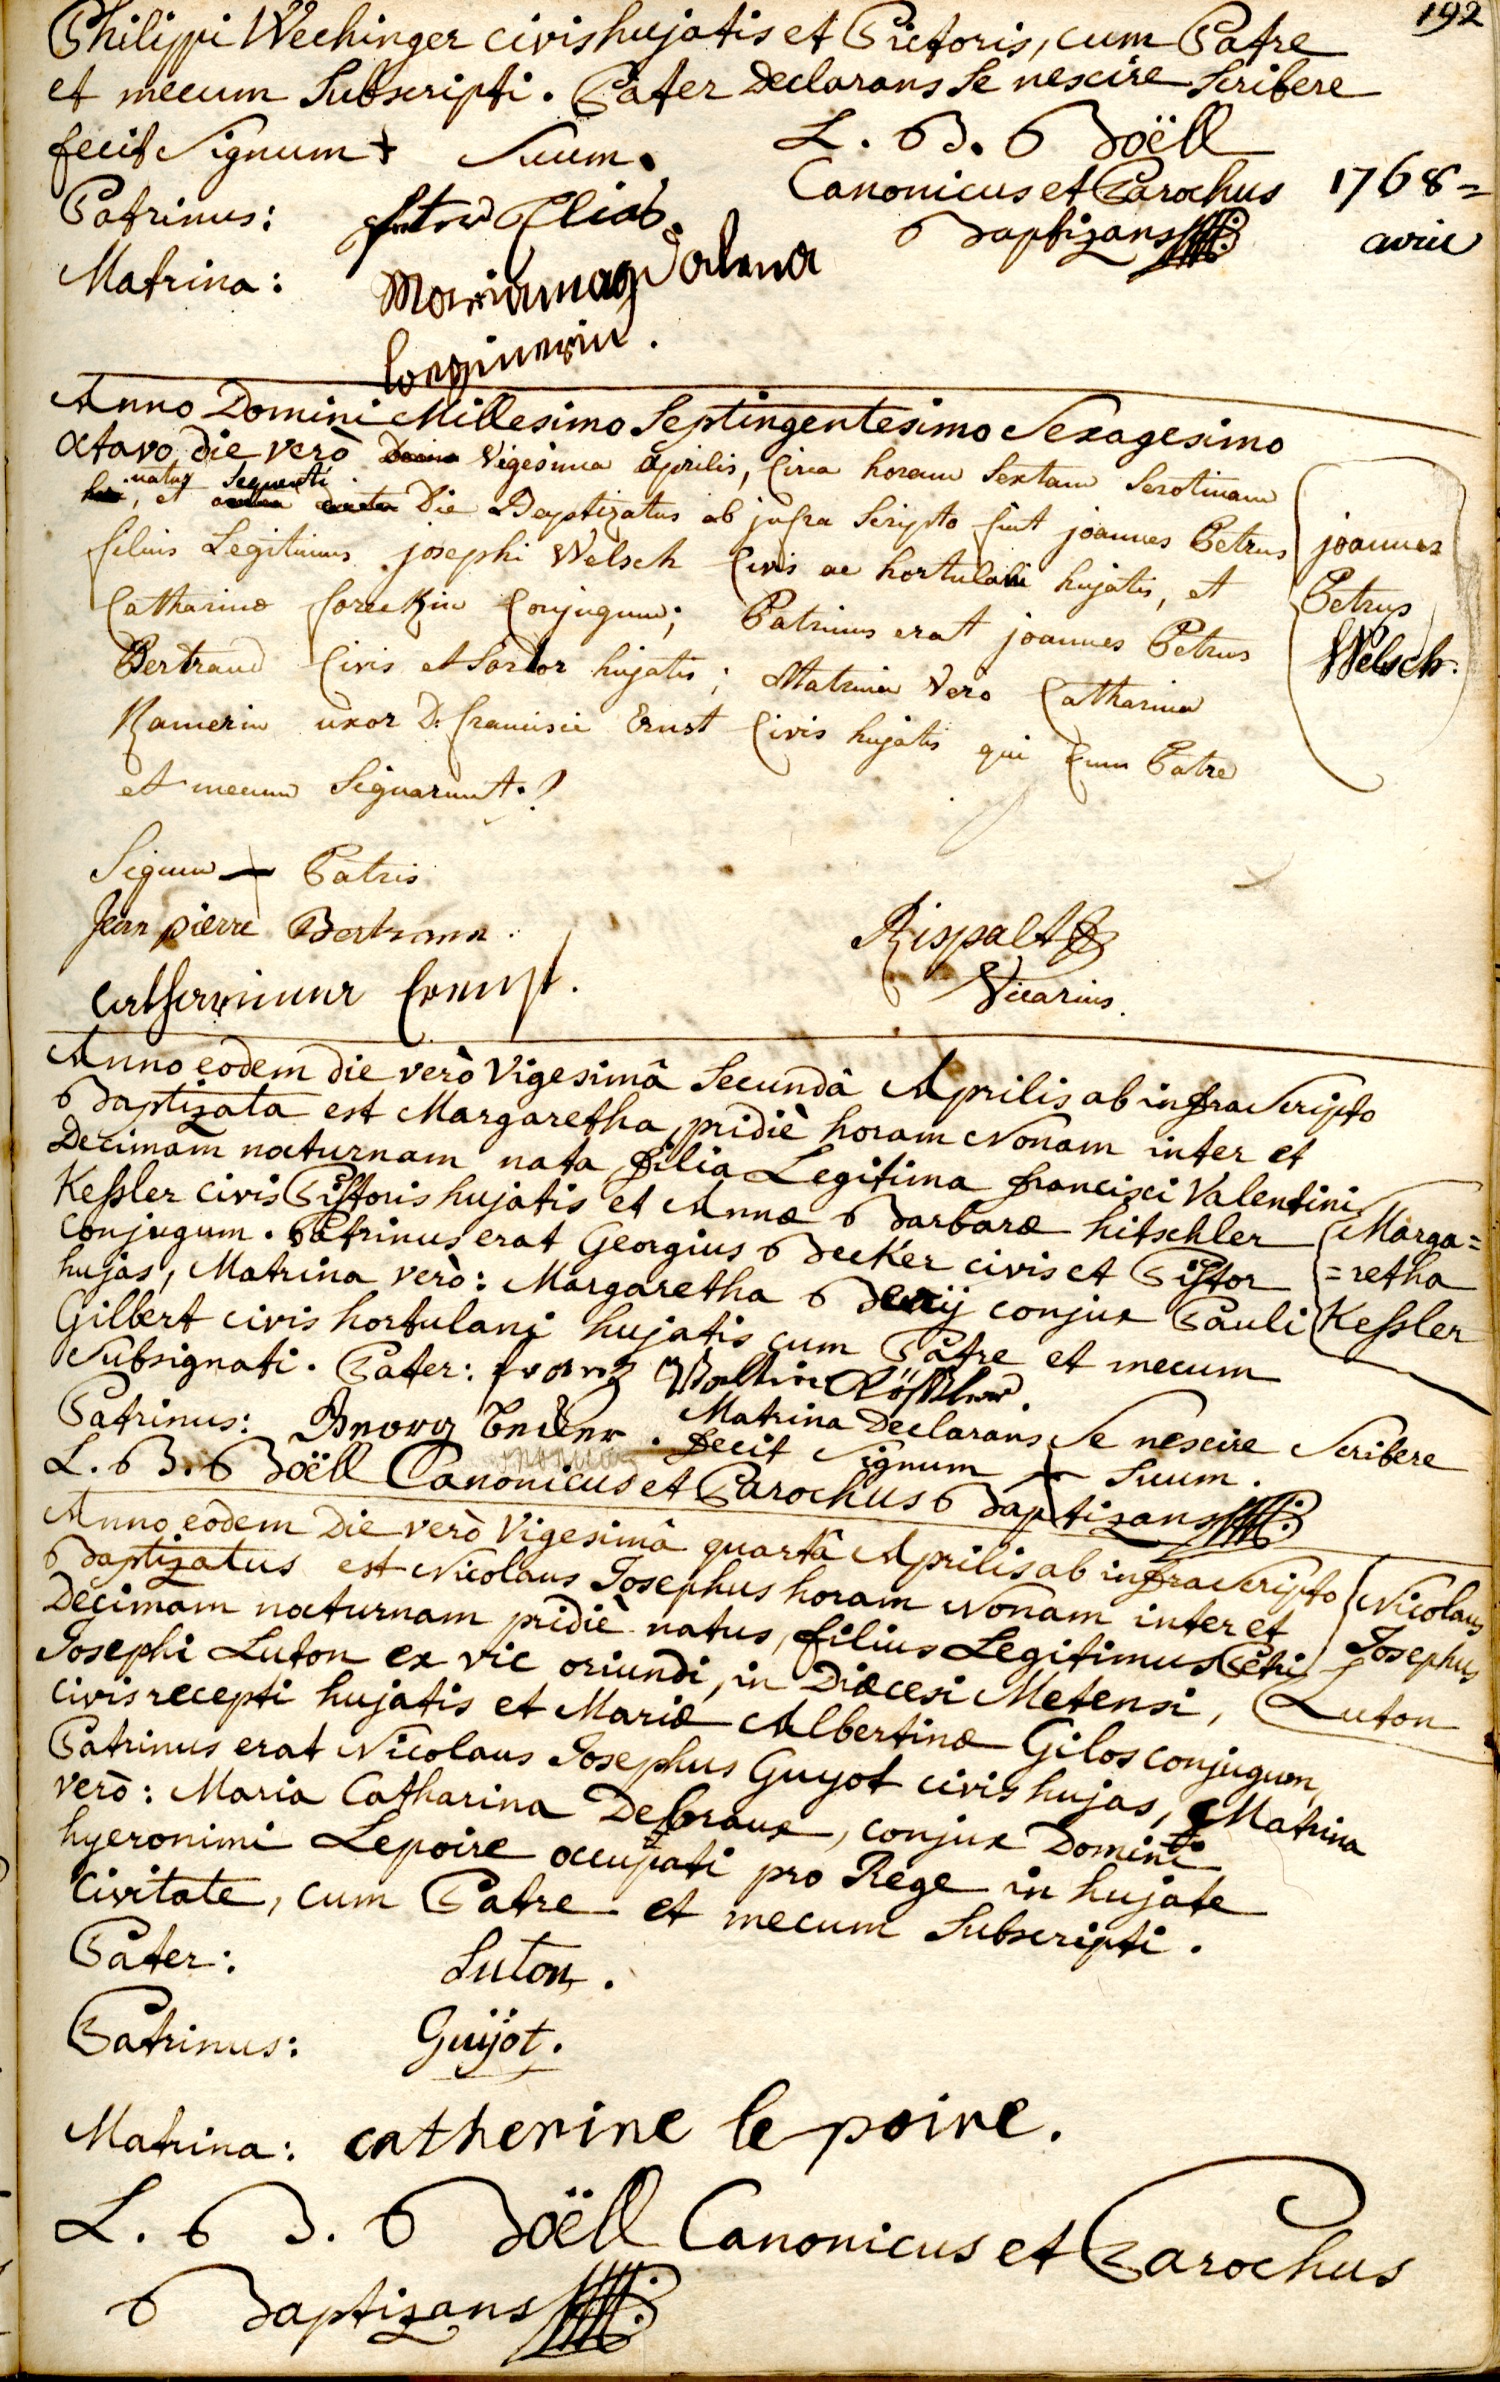 192
Philippi Wechinger civis hujatis et Pictoris, cum Patre
et mecum Subscripti. Pater Declarans Se nescire Scribere
fecit Signum + Suum.
L. B. Boëll
Canonicus et Parochus
Baptizans
1768=
avril
Patrinus:
Matrina: Mariamagdalena
Anno Domini Millesimo Septingentesimo Sexagesimo
octavo die verò Vigesima Aprilis, circa horam Sextam Serotinam
natus Sequenti
, et Die Baptizatus ab infra Scripto fuit joannes Petrus
filius Legitimus josephi Welsch Civis ac hortulani hujatis, et
Catharinæ Conjugum; Patrinus erat joannes Petrus
Bertrand Civis et Sartor hujatis; Matrina Vero Catharina
Ramerin uxor D. francisci Ernst Civis hujatis qui Cum Patre
et mecum Signarunt.
joannes
Petrus
Welsch.
Signum + Patris
Jean pierre Bertrann.
Catharinna Ernst.
Rispalt
Vicarius.
Anno eodem die verò Vigesimâ Secundâ Aprilis ab infra Scripto
Baptizata est Margaretha, pridiè horam Nonam inter et
Decimam nocturnam nata filia Legitima francisci Valentini
Keßler civis Pistoris hujatis et Annæ Barbaræ hitschler
conjugum. Patrinus erat Georgius Becker civis et Pistor
hujas, Matrina verò: Margaretha conjux Pauli
Gilbert civis hortulani hujatis cum Patre et mecum
Subsignati. Pater: frantz
Marga=
=retha
Keßler
Patrinus: Georg Becker. Matrina Declarans Se nescire Scribere
fecit Signum + Suum.
L. B. Boëll Canonicus et Parochus Baptizans
Anno eodem Die verò Vigesimâ quartâ Aprilis ab infra Scripto
Baptizatus est Nicolaus Josephus horam Nonam inter et
Decimam nocturnam pridiè natus, filius Legitimus Petri
Josephi Luton ex vic oriundi, in Diæcesi Metensi,
civis recepti hujatis et Mariæ Albertinæ Gilos conjugum,
Patrinus erat Nicolaus Josephus Guyot civis hujas, Matrina
verò: Maria Catharina Desbraux, conjux Domini
hyeronimi Lepoire occupati pro Rege in hujate
Civitate, cum Patre et mecum Subscripti.
Nicolaus
Josephus
Luton
Pater: Luton.
Patrinus: Guÿot.
Matrina: catherine le poire.
L. B. Boëll Canonicus et Parochus
Baptizans